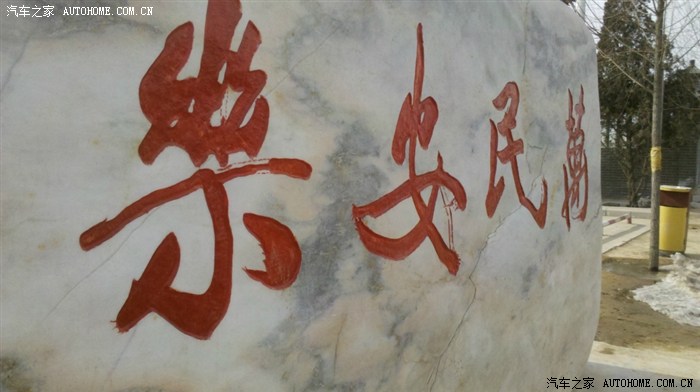 汽车之家 AUTOHOME.COM.CN
萬民安樂
汽车之家
AUTOHOME.COM.CN